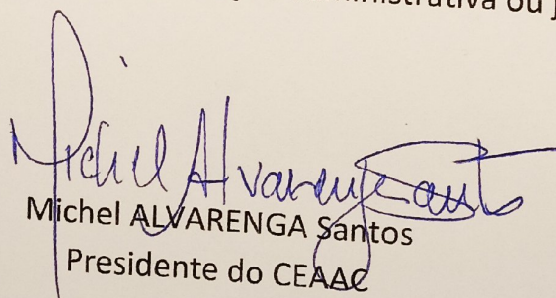 ministrativa ou
Michel Alvarenga Santos
Michel ALVARENGA Santos
Presidente do CEAAC